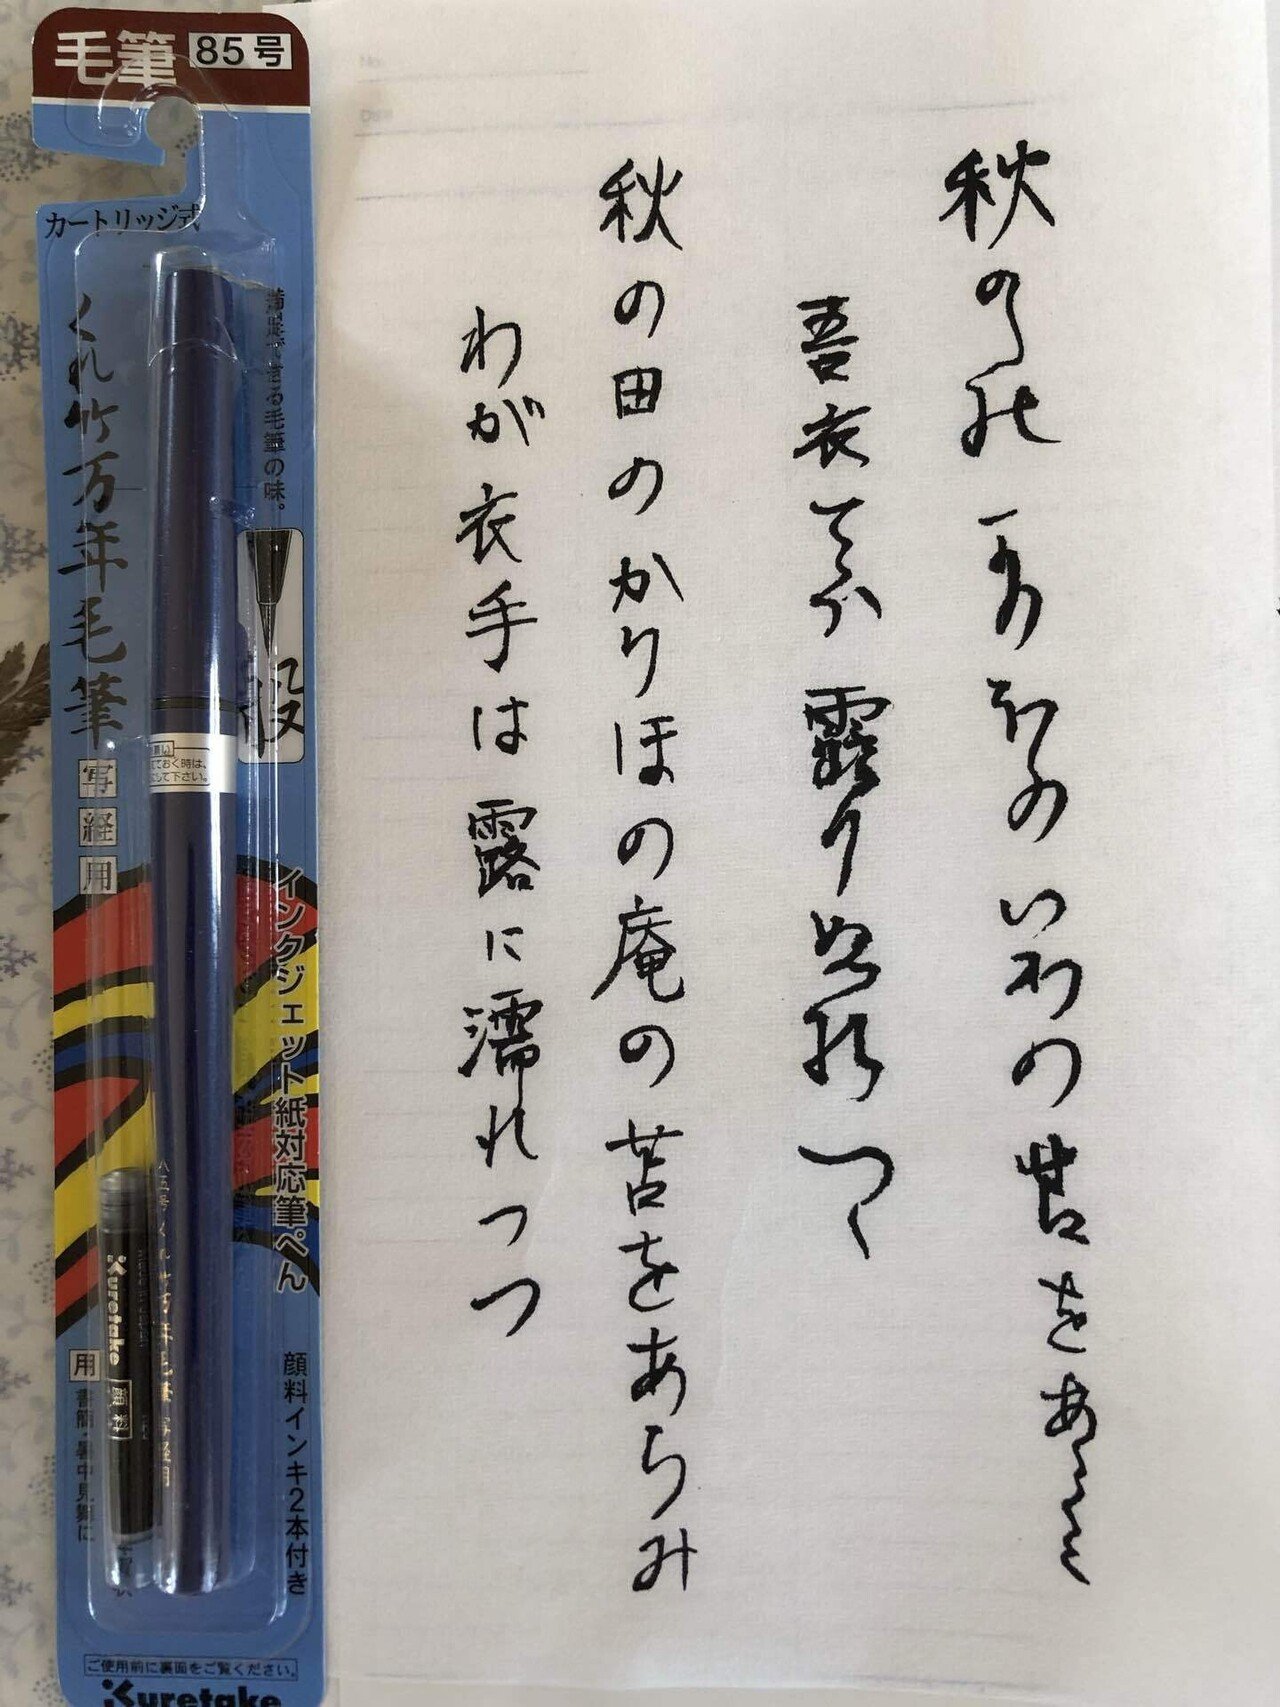 毛筆 85号
カートリッジ式
くれ竹万年毛筆
写経用
満足できる毛筆の味。
インクジェット紙対応筆ぺん
顔料インキ2本付き
Kuretake
顔料
八五号くれ竹万年毛筆 写経用
用
書簡・暑中見舞に
ご使用前に裏面をご覧ください。
Kuretake
秋の
いわの苫をあ
吾衣
露
つゝ
秋の田のかりほの庵の苫をあらみ
わが衣手は露に濡れつつ